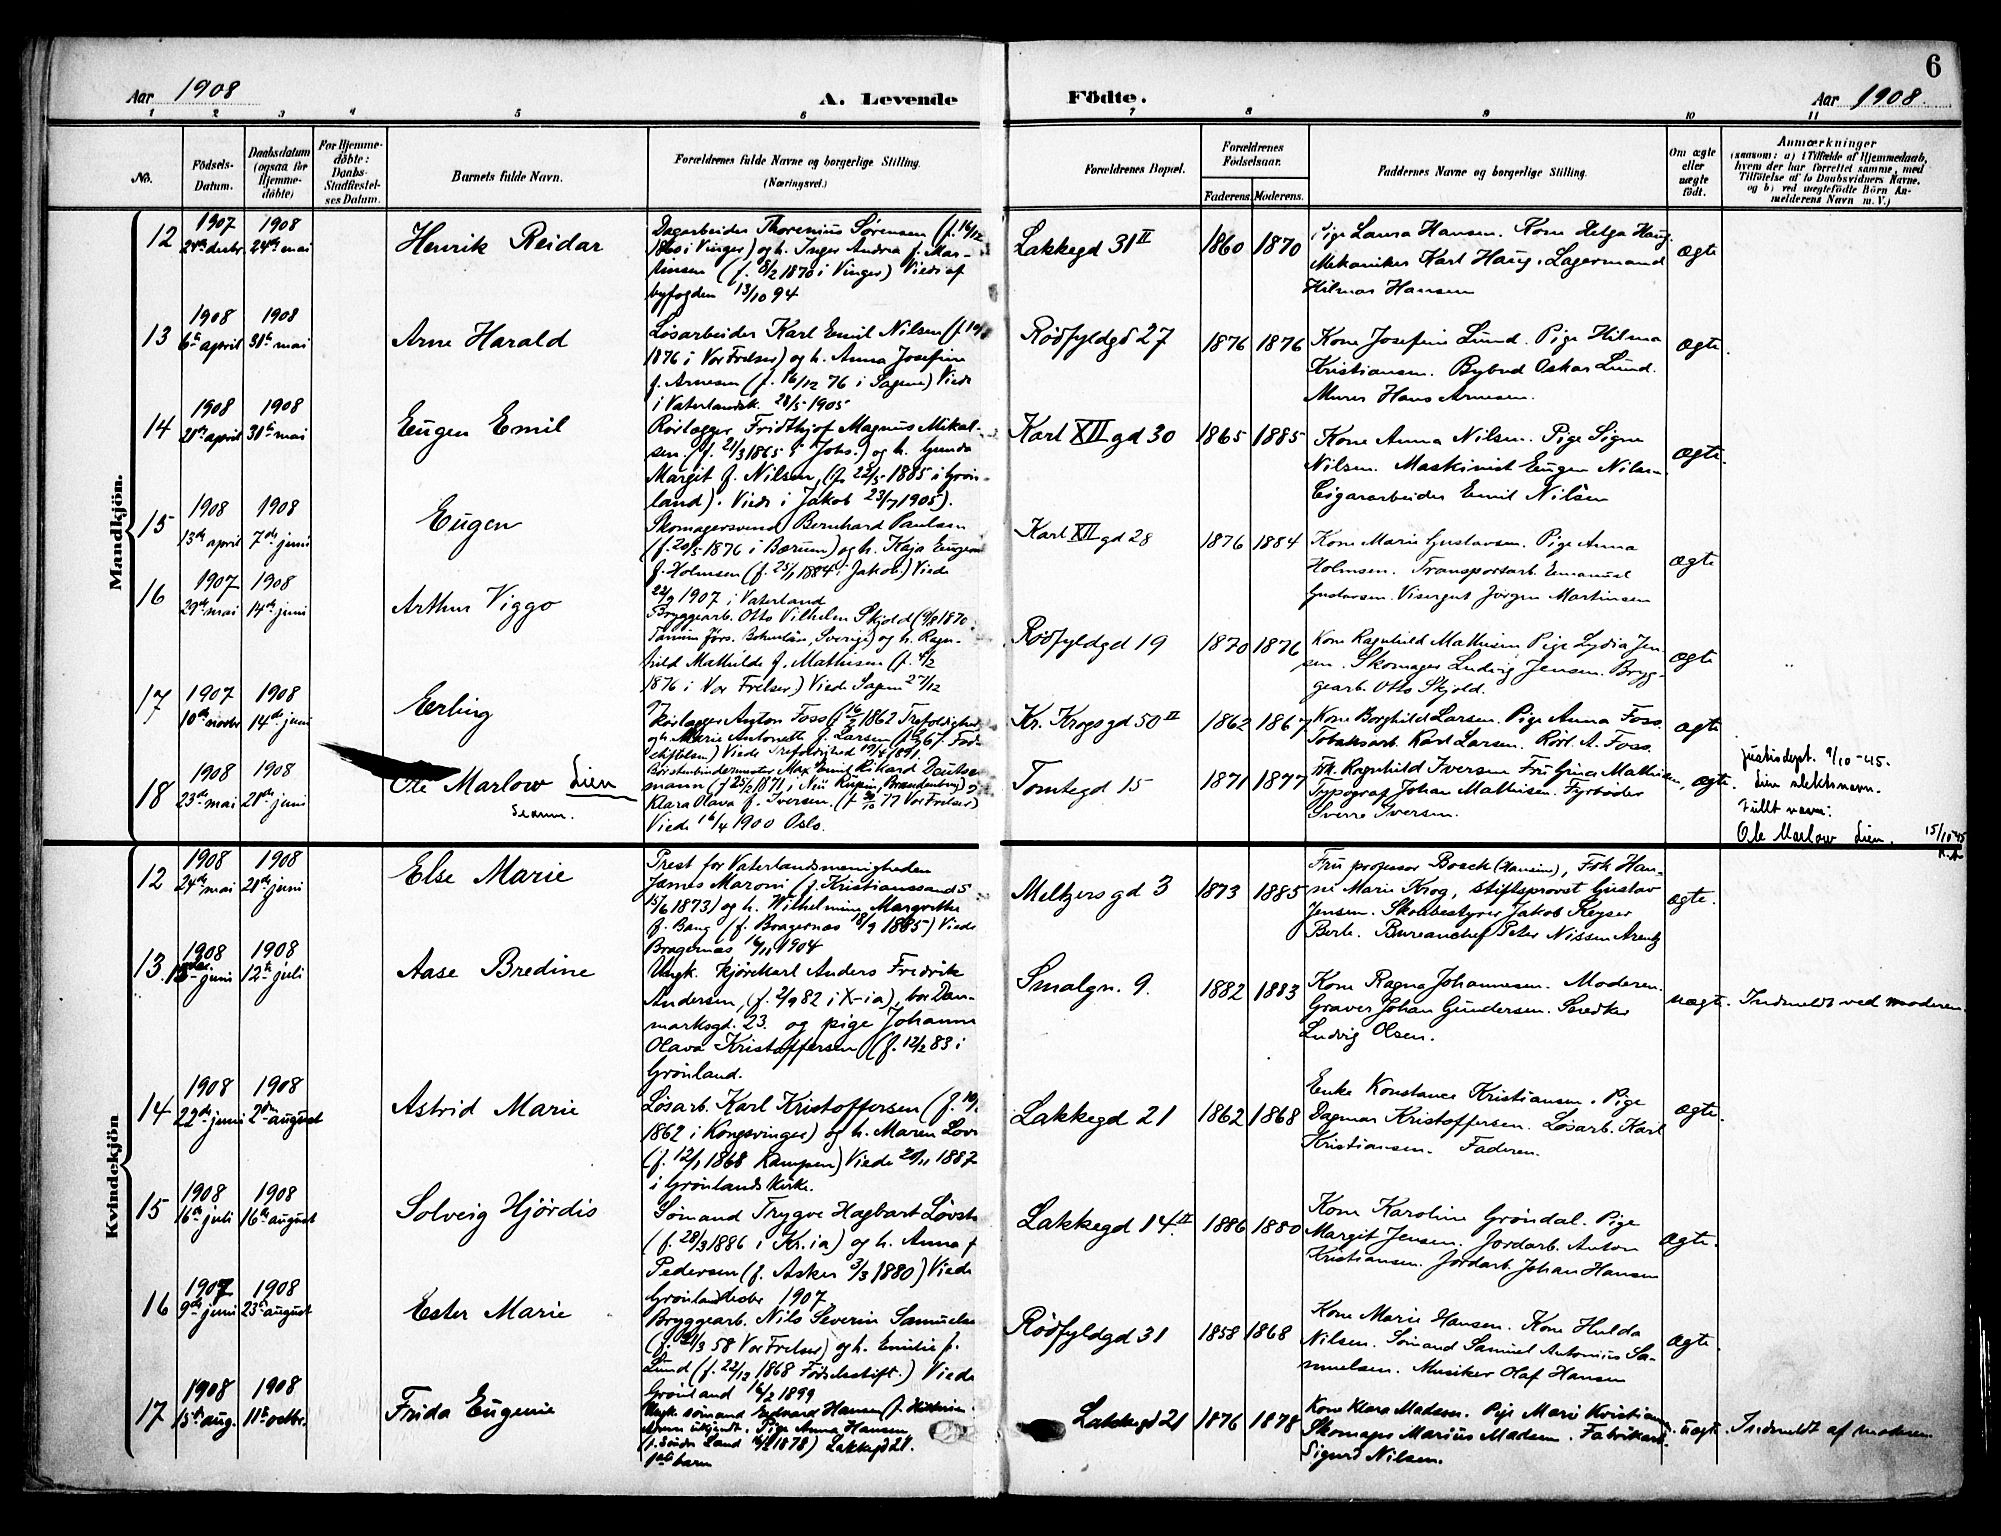 6
Aar 1908
A. Levende
Födte.
Aar 1908
1 2 3 4 5 6 7 8 9 10 11
No.
Födsels-
Datum.
Daabsdatum
(ogsaa for
Hjemme-
döbte)
For Hjemme-
döbte:
Daabs-
Stadfæstel-
ses Datum.
Barnets fulde Navn.
Forældrenes fulde Navne og borgerlige Stilling.
(Næringsvei.)
Forældrenes Bopæl.
Forældrenes
Födselsaar.
Faderens.
Moderens.
Faddernes Navne og borgerlige Stilling.
Om ægte
eller
uægte
födt.
Anmærkninger
(saasom: a) i Tilfælde af Hjemmedaab,
hvem der har forrettet samme, med
Tilföielse af to Daabsvidners Navne.
og b) ved uægtefödte Börn An-
melderens Navn m. V.)
Mandkjön.
12
1907
1908
24de mai
Henrik Reidar
Dagarbeider Thorenius Sörensen (f. 14/12
1860 i Vinger) og h. Inger Andrea f. Mar-
tensen (f. 8/2 1870 i Vinger) Viede af
byfogden 13/10 94
Lakkegd 31 II
1860
1870
Pige Laura Hansen. Kone Helga Haug.
Mekaniker Karl Haug. Lagermand
Hilmar Hansen
ægte
13
1908
6te april
1908
31te mai
Arne Harald
Lösarbeider Karl Emil Nilsen (f.
1876 i Vor Frelser) og h. Anna Josefine
f. Arnesen (f. 16/12 76 i Sagene) Viede
i Vaterlandsk. 28/5 1905
Rödfyldgd 27
1876
1876
Kone Josefine Lund. Pige Hilma
Kristiansen. Bybud Oskar Lund.
Murer Hans Arnesen.
ægte.
14
1908
21de april
1908
31te mai
Eugen Emil
Rörlægger Fridthjof Magnus Mikal-
sen. (f. 21/3 1865 i Johs.) og h. Gunda
Margit f. Nilsen, (f. 22/5 1885 i Grön-
land). Viede i Jakob 23/7 1905).
Karl XII gd 30
1865
1885
Kone Anna Nilsen. Pige Signe
Nilsen. Maskinist Eugen Nilsen
Cigararbeider Emil Nilsen
ægte.
15
1908
13de april
1908
7de juni
Eugen
Skomagersvend Bernhard Paulsen
(f. 20/5 1876 i Bærum) og h. Kaja Eugenie
f. Holmsen (f. 25/1 1884 i Jakob.) Viede
22/9 1907 i Vaterland
Karl XII gd 28
1876
1884
Kone Marie Gustavsen. Pige Anna
Holmsen. Transportarb. Emanuel
Gustavsen. Visergut Jörgen Martinsen
ægte
16
1907
29de mai
1908
14de juni
Arthur Viggo
Bryggearb. Otto Vilhelm Skjold (4/8 1870
Tanum Förs. Bohuslän, Sverige) og h. Ragn-
hild Mathilde f. Mathisen (f. 4/2
1876 i Vor Frelser.) Viede Sagene 27/12
Rödfyldgd 19
1870
1876
Kone Ragnhild Mathisen Pige Lydia Jen-
sen. Skomager Ludvig Jensen. Brygg-
gearb. Otto Skjold.
ægte
17
1907
10de novbr
1908
14de juni
Erling
Rörlægger Anton Foss (f. 16/2 1862 Trefoldighed)
og h. Marie Antonette f. Larsen (f. 67 Föd-
selsstiftelsen) Viede Trefoldighed 19/4 1891.
Kr. Krogs gd 50 II
1862
1867
Kone Borghild Larsen. Pige Anna Foss
Tobaksarb. Karl Larsen. Rörl. A. Foss.
ægte
18
1908
23de mai
1908
21de juni
Ole Marlow Lien
Börstenbindermester Max Emil Rikard Deutsch-
mann (f. 25/2 1871 i Neu Rupin, Brandenburg) og
Klara Olava f. Iversen. (f. 77 Vor Frelser)
Viede 16/4 1900 Oslo.
Tomtegd 15
1871
1877
Frk. Ragnhild Iversen Fru Gina Mathisen,
Typograf Johan Mathisen. Fyrböder
Sverre Iversen.
ægte.
Justisdept. 9/10-45.
Lien slektsnavn.
Fullt navn:
Ole Marlow Lien.
15/10 45
Kvindekjön
12
1908
24de mai
1908
21de juni
Else Marie
Prest for Vaterlandsmenigheden
James Maroni (f. Kristianssand S
15/6 1873) og h. Wilhelmine Margrethe
f. Bang (f. Bragernæs 18/9 1885) Viede
Bragernæs 16/11 1904
Meltzers gd 3
1873
1885
Fru professor Boeck (Hansine), Frk Han-
ne Marie Krog, stiftsprovst Gustav
Jensen. Skolebestyrer Jakob Keyser
Berle. Bureauchef Peter Nissen Arentz
ægte.
13
1908
juni
1908
12te juli
Aase Bredine
Ungk. kjörekarl Anders Fredrik
Andersen, (f. 2/9 82 i X-ia), bor Dan-
marksgd. 23. og pige Johanne
Olava Kristoffersen (f. 12/2 83 i
Grönland.
Smalgn. 9.
1882
1883
Kone Ragna Johannesen. Moderen.
Graver Johan Gundersen. Snedker
Ludvig Olsen.
uægte.
Indmeldt ved moderen.
14
1908
22de juni
1908
2den august
Astrid Marie
Lösarb. Karl Kristoffersen (f.
1862 i Kongsvinger) og h. Maren Lov
(f. 12/1 1868 Kampen) Viede 20/11 1887
i Grönlands Kirke.
Lakkegd 21
1862
1868
Enke Konstance Kristiansen. Pige
Dagmar Kristoffersen. Lösarb. Karl
Kristiansen. Faderen.
ægte.
15
1908
16de juli
1908
16de august
Solveig Hjördis
Sömand Trygve Hagbart Lövst
(f. 28/3 1886 i Kr.ia) og h. Anna f
Pedersen (f. Asker 3/3 1880) Viede
Grönland 1907
Lakkegd 14 II
1886
1880
Kone Karoline Gröndal. Pige
Margit Jensen. Jordarb. Anton
Kristiansen. Jordarb. Johan Hansen
ægte.
16
1907
9de juni
1908
23de august
Ester Marie
Bryggearb. Nils Severin Samuelse
(f. 21/3 58 Vor Frelser) og h. Emilie f.
Lund (f. 22/12 1868 Födselsstift.) Viede
Grönland 16/2 1899
Rödfyldgd 31
1858
1868
Kone Marie Hansen. Kone Hulda
Nilsen. Sömand Samuel Antonius Sa-
muelsen. Musiker Olaf Hansen
ægte.
17
1908
15de aug.
1908
11te octbr.
Frida Eugenie
Ungk. sömand Edvard Hansen
Pige Anna Hansen
(f. Söndre Land 1878) Lakkegd 21.
barn
Lakkegd 21
1876
1878
Kone Klara Madsen. Pige Marie Kristiansen
Skomager Marius Madsen. Fabrikarb.
Sigurd Nilsen.
uægte.
Indmeldt af moderen